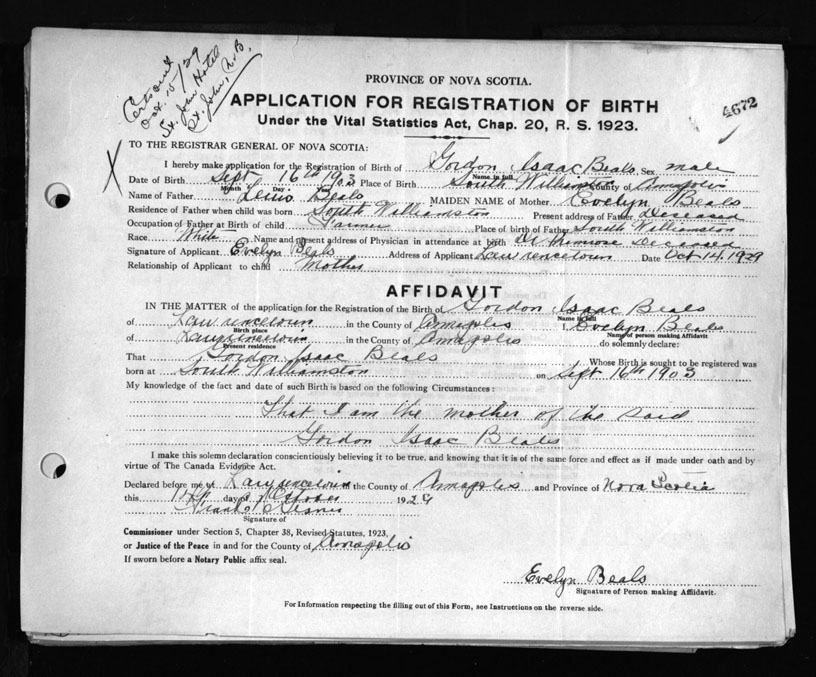 Oct. 15/29
St. John Hotel
St. John, N.B.
4672
PROVINCE OF NOVA SCOTIA.
APPLICATION FOR REGISTRATION OF BIRTH
Under the Vital Statistics Act, Chap. 20, R. S. 1923.
X
TO THE REGISTRAR GENERAL OF NOVA SCOTIA:
I hereby make application for the Registration of Birth of Gordon Isaac Beals Sex male
Name in full
Date of Birth Sept 16th 1903 Place of Birth South Williamston County of Annapolis
Month Day
Name of Father Beals MAIDEN NAME of Mother Evelyn Beals
Residence of Father when child was born South Williamston Present address of Father Deseased
Occupation of Father at Birth of child Farmer Place of birth of Father South Williamston
Race White Name and present address of Physician in attendance at birth Dr Primrose Deceased
Signature of Applicant Evelyn Beals Address of Applicant Lawrencetown Date Oct 14, 1929
Relationship of Applicant to child Mother
AFFIDAVIT
IN THE MATTER of the application for the Registration of the Birth of Gordon Isaac Beals
Name in full
of Lawrencetown in the County of Annapolis I Evelyn Beals
Birth place Name of person making Affidavit
of Lawrencetown in the County of Annapolis do solemnly declare:
Present residence
That Gordon Isaac Beals Whose Birth is sought to be registered was
born at South Williamston on Sept 16th 1903
My knowledge of the fact and date of such Birth is based on the following Circumstances:
That I am the mother of the said
Gordon Isaac Beals
I make this solemn declaration conscientiously believing it to be true, and knowing that it is of the same force and effect as if made under oath and by
virtue of The Canada Evidence Act.
Declared before me at Lawrencetown the County of Annapolis and Province of Nova Scotia
this day of October 1929
Signature of
Commissioner under Section 5, Chapter 38, Revised Statutes, 1923,
or Justice of the Peace in and for the County of Annapolis
If sworn before a Notary Public affix seal.
Evelyn Beals
Signature of Person making Affidavit.
For Information respecting the filling out of this Form, see Instructions on the reverse side.